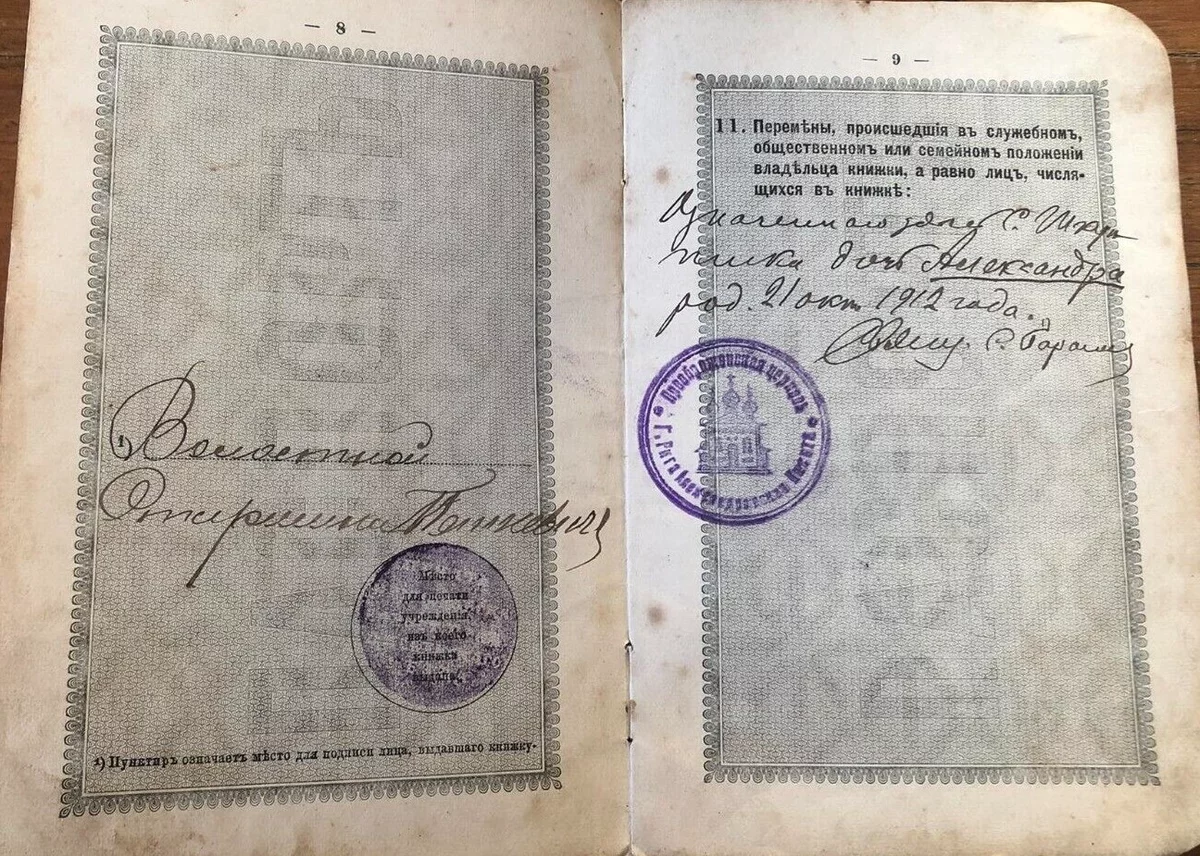 — 8 —
¹) Волостной
Старшина
Мѣсто
для печати
учрежденія,
изъ коего
книжка
выдана.
¹) Пунктиръ означаетъ мѣсто для подписи лица, выдавшаго книжку-
— 9 —
11. Перемѣны, происшедшія въ служебномъ,
общественномъ или семейномъ положеніи
владѣльца книжки, а равно лицъ, числя-
щихся въ книжкѣ:
С.
дочь Александра
род. 21 окт 1912 года.
Свящ. С.
Преображенская церковь
Г. Рига Александровская Высота